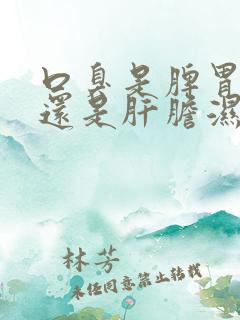 口臭是脾胃
還是肝膽濕
林芳
未经同意禁止转载